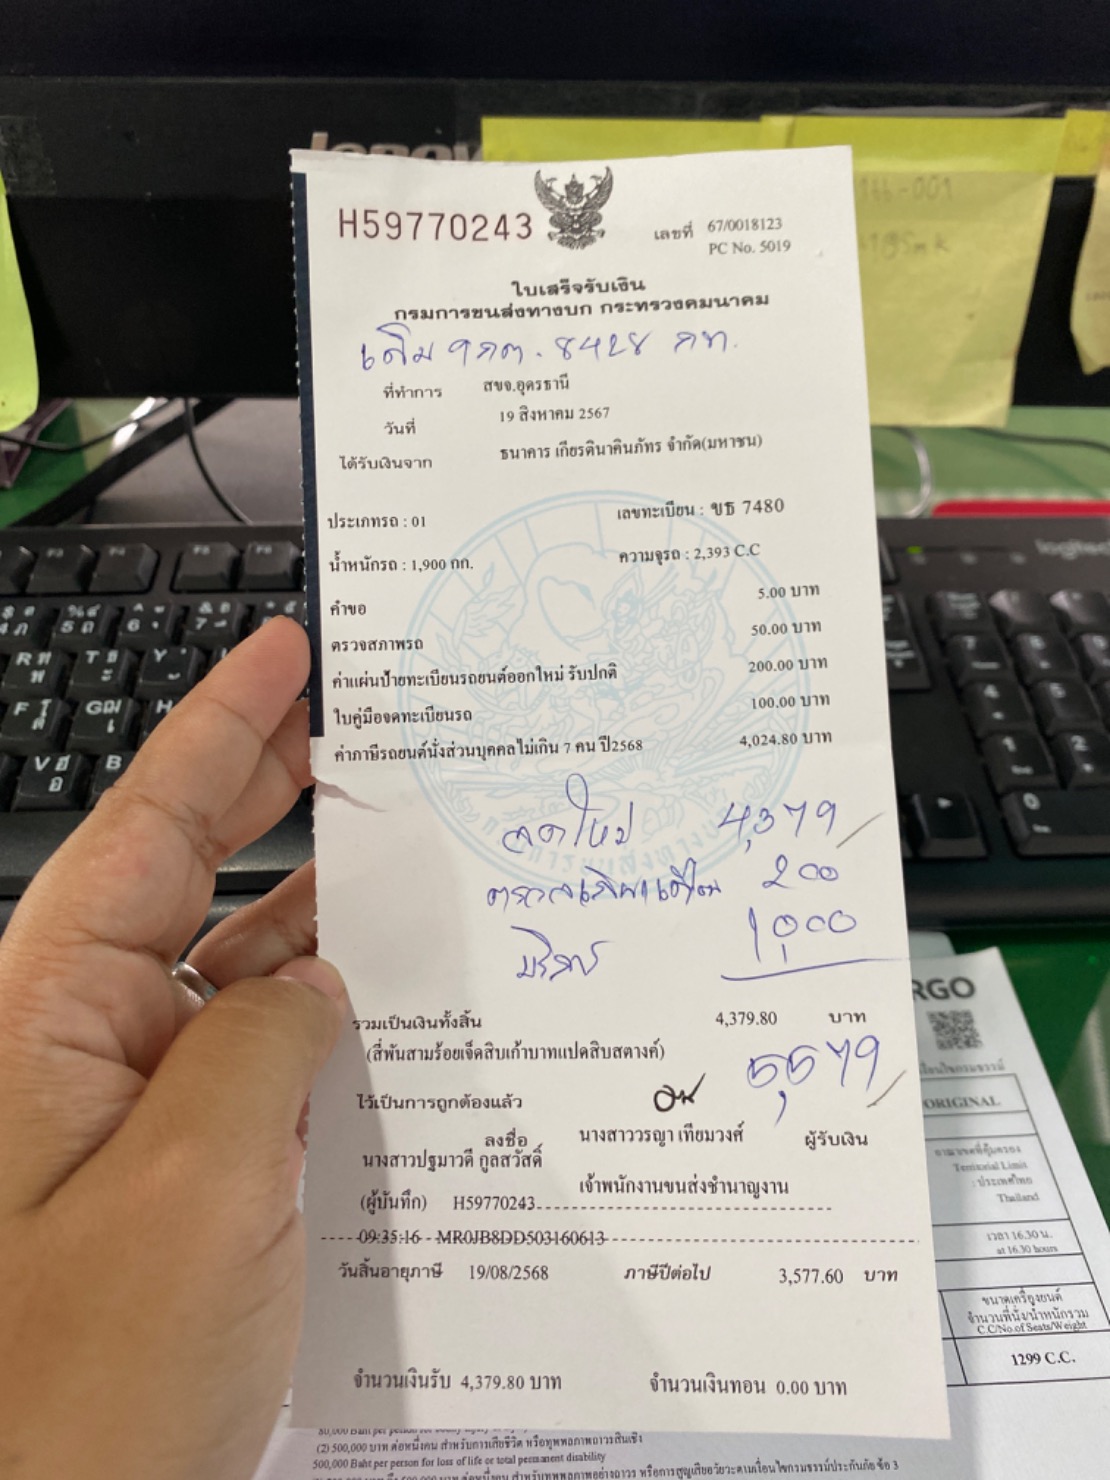 H59770243
เลขที่ 67/0018123
PC No. 5019
ใบเสร็จรับเงิน
กรมการขนส่งทางบก กระทรวงคมนาคม
เดิม 9กต. 8428 กท.
ที่ทำการ สขจ.อุดรธานี
วันที่ 19 สิงหาคม 2567
ได้รับเงินจาก ธนาคาร เกียรตินาคินภัทร จำกัด(มหาชน)
ประเภทรถ : 01 เลขทะเบียน : ขธ 7480
น้ำหนักรถ : 1,900 กก. ความจุรถ : 2,393 C.C
คำขอ 5.00 บาท
ตรวจสภาพรถ 50.00 บาท
ค่าแผ่นป้ายทะเบียนรถยนต์ออกใหม่ รับปกติ 200.00 บาท
ใบคู่มือจดทะเบียนรถ 100.00 บาท
ค่าภาษีรถยนต์นั่งส่วนบุคคลไม่เกิน 7 คน ปี2568 4,024.80 บาท
จดใหม่ 4,379
200
บริการ 1,000
รวมเป็นเงินทั้งสิ้น 4,379.80 บาท
(สี่พันสามร้อยเจ็ดสิบเก้าบาทแปดสิบสตางค์)
5,579
ไว้เป็นการถูกต้องแล้ว
ลงชื่อ นางสาววรญา เทียมวงศ์ ผู้รับเงิน
นางสาวปฐมาวดี กูลสวัสดิ์
เจ้าพนักงานขนส่งชำนาญงาน
(ผู้บันทึก) H59770243
09:35:16 MR0JB8DD503160613
วันสิ้นอายุภาษี 19/08/2568 ภาษีปีต่อไป 3,577.60 บาท
จำนวนเงินรับ 4,379.80 บาท จำนวนเงินทอน 0.00 บาท
RGO
ORIGINAL
Territorial Limit
: ประเทศไทย
Thailand
เวลา 16.30 น.
at 16.30 hours
ขนาดเครื่องยนต์
จำนวนที่นั่ง/น้ำหนักรวม
C.C/No.of Seats/Weight
1299 C.C.
(2) 500,000 บาท ต่อหนึ่งคน สำหรับการเสียชีวิต หรือทุพพลภาพถาวรสิ้นเชิง
500,000 Baht per person for loss of life or total permanent disability
logitech